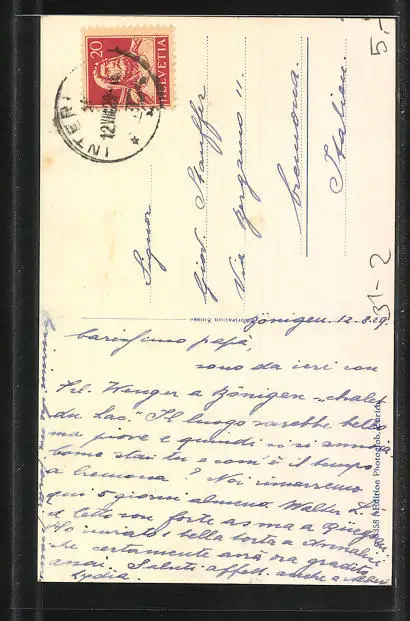 20
HELVETIA
INTER
12.VIII.29
5.-
31-2
Signor
Giov. Stauffer
Via Bergamo 11.
Cremona.
Italien.
Fabrication Suisse
Bönigen, 12.8.29.
Carissimo papà,
sono da ieri con
Frl. Wenger a Bönigen "chalet
du Lac". Il luogo sarebbe bello
ma piove e quindi ci si annoia.
Come stai tu e com'è il tempo
a Cremona? Noi rimarremo
qui 5 giorni almeno. Walter è
a letto con forte asma a
Ho inviato 1 bella torta a
che certamente avrà ora gradito
assai. Saluti affett. anche a
Lydia.
8358 Edition Photoglob